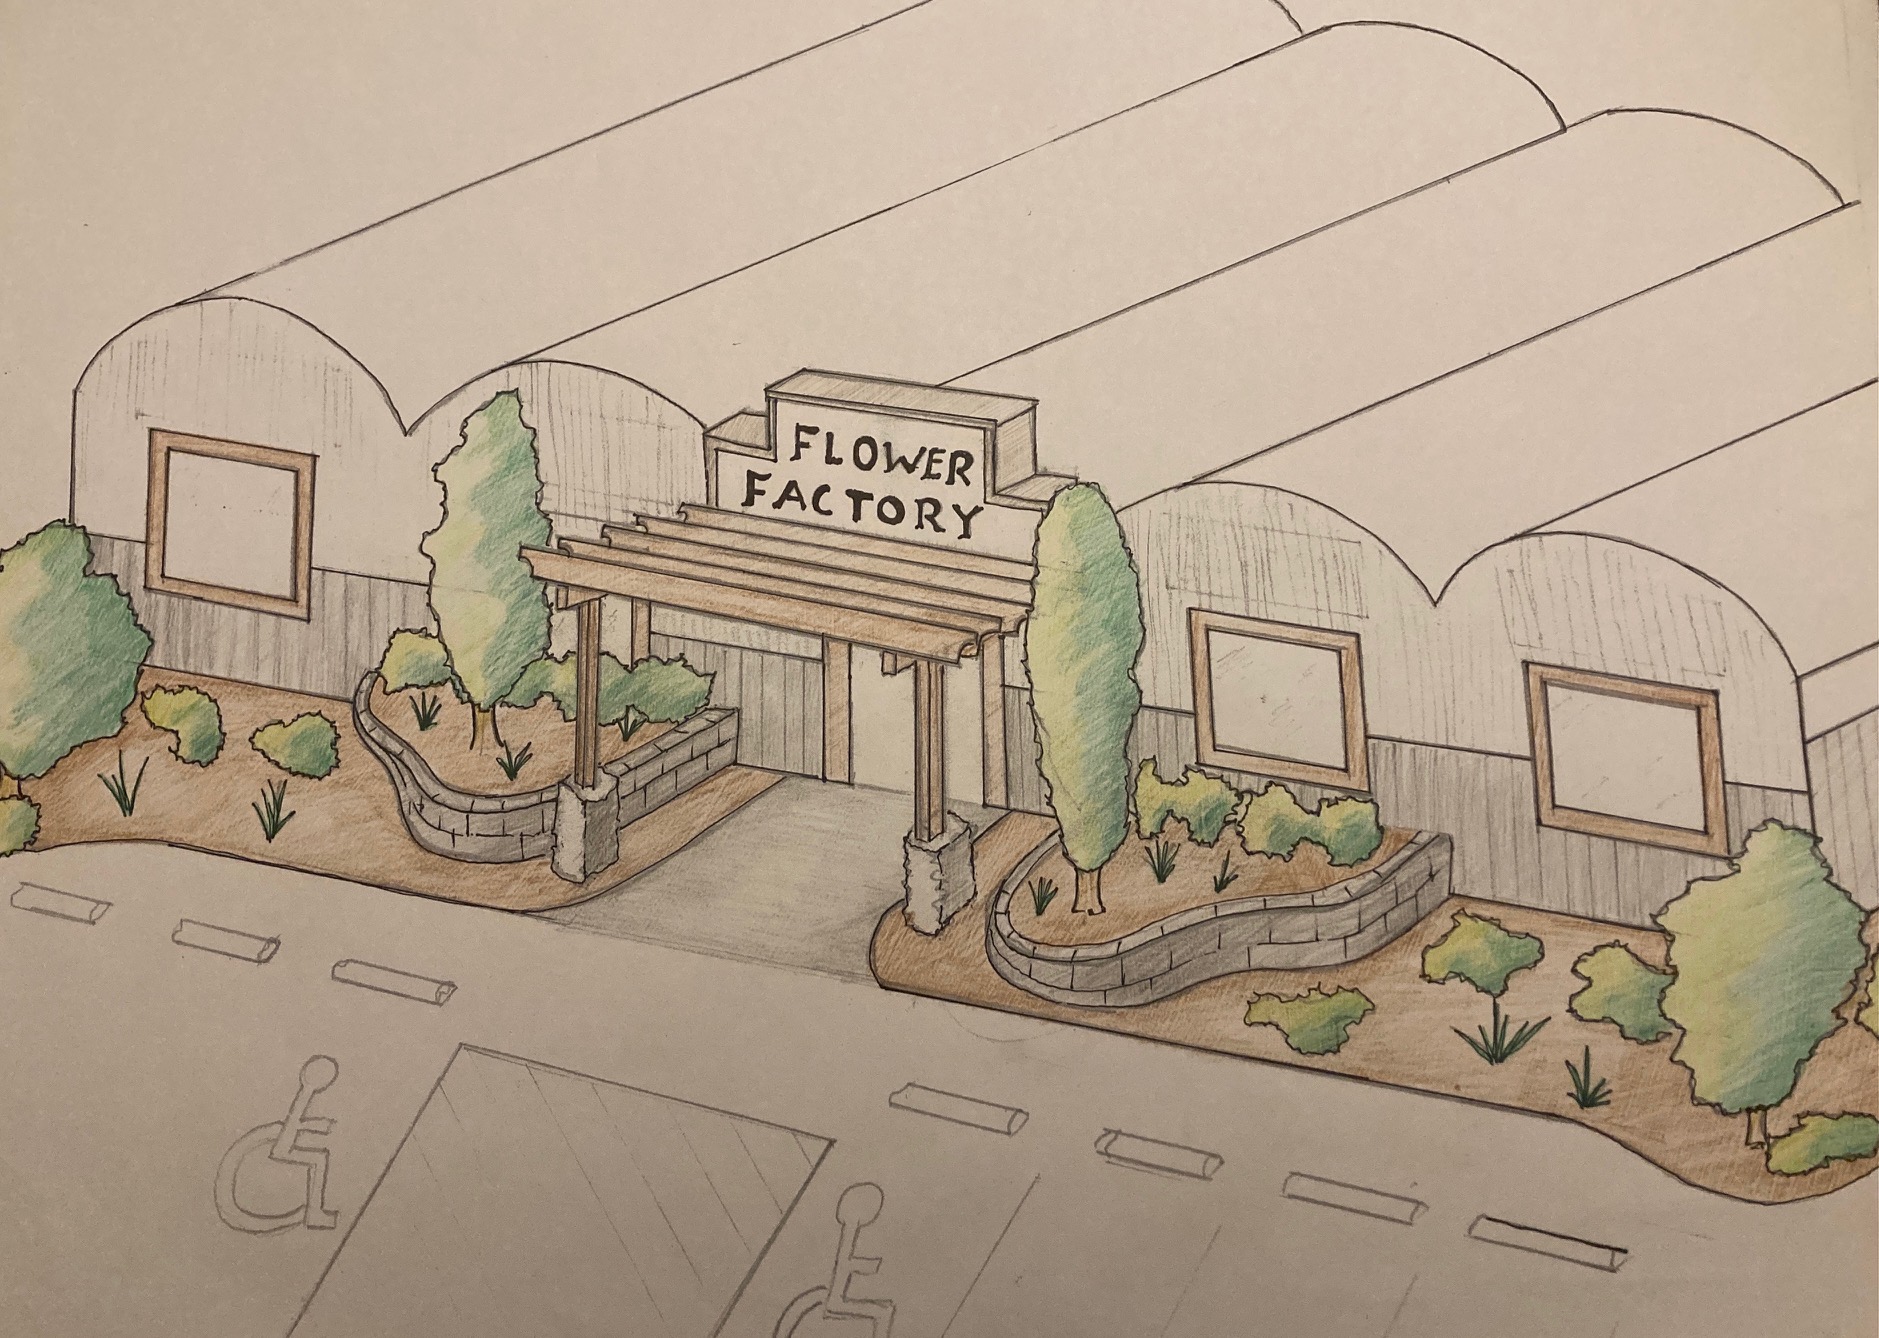 FLOWER
FACTORY